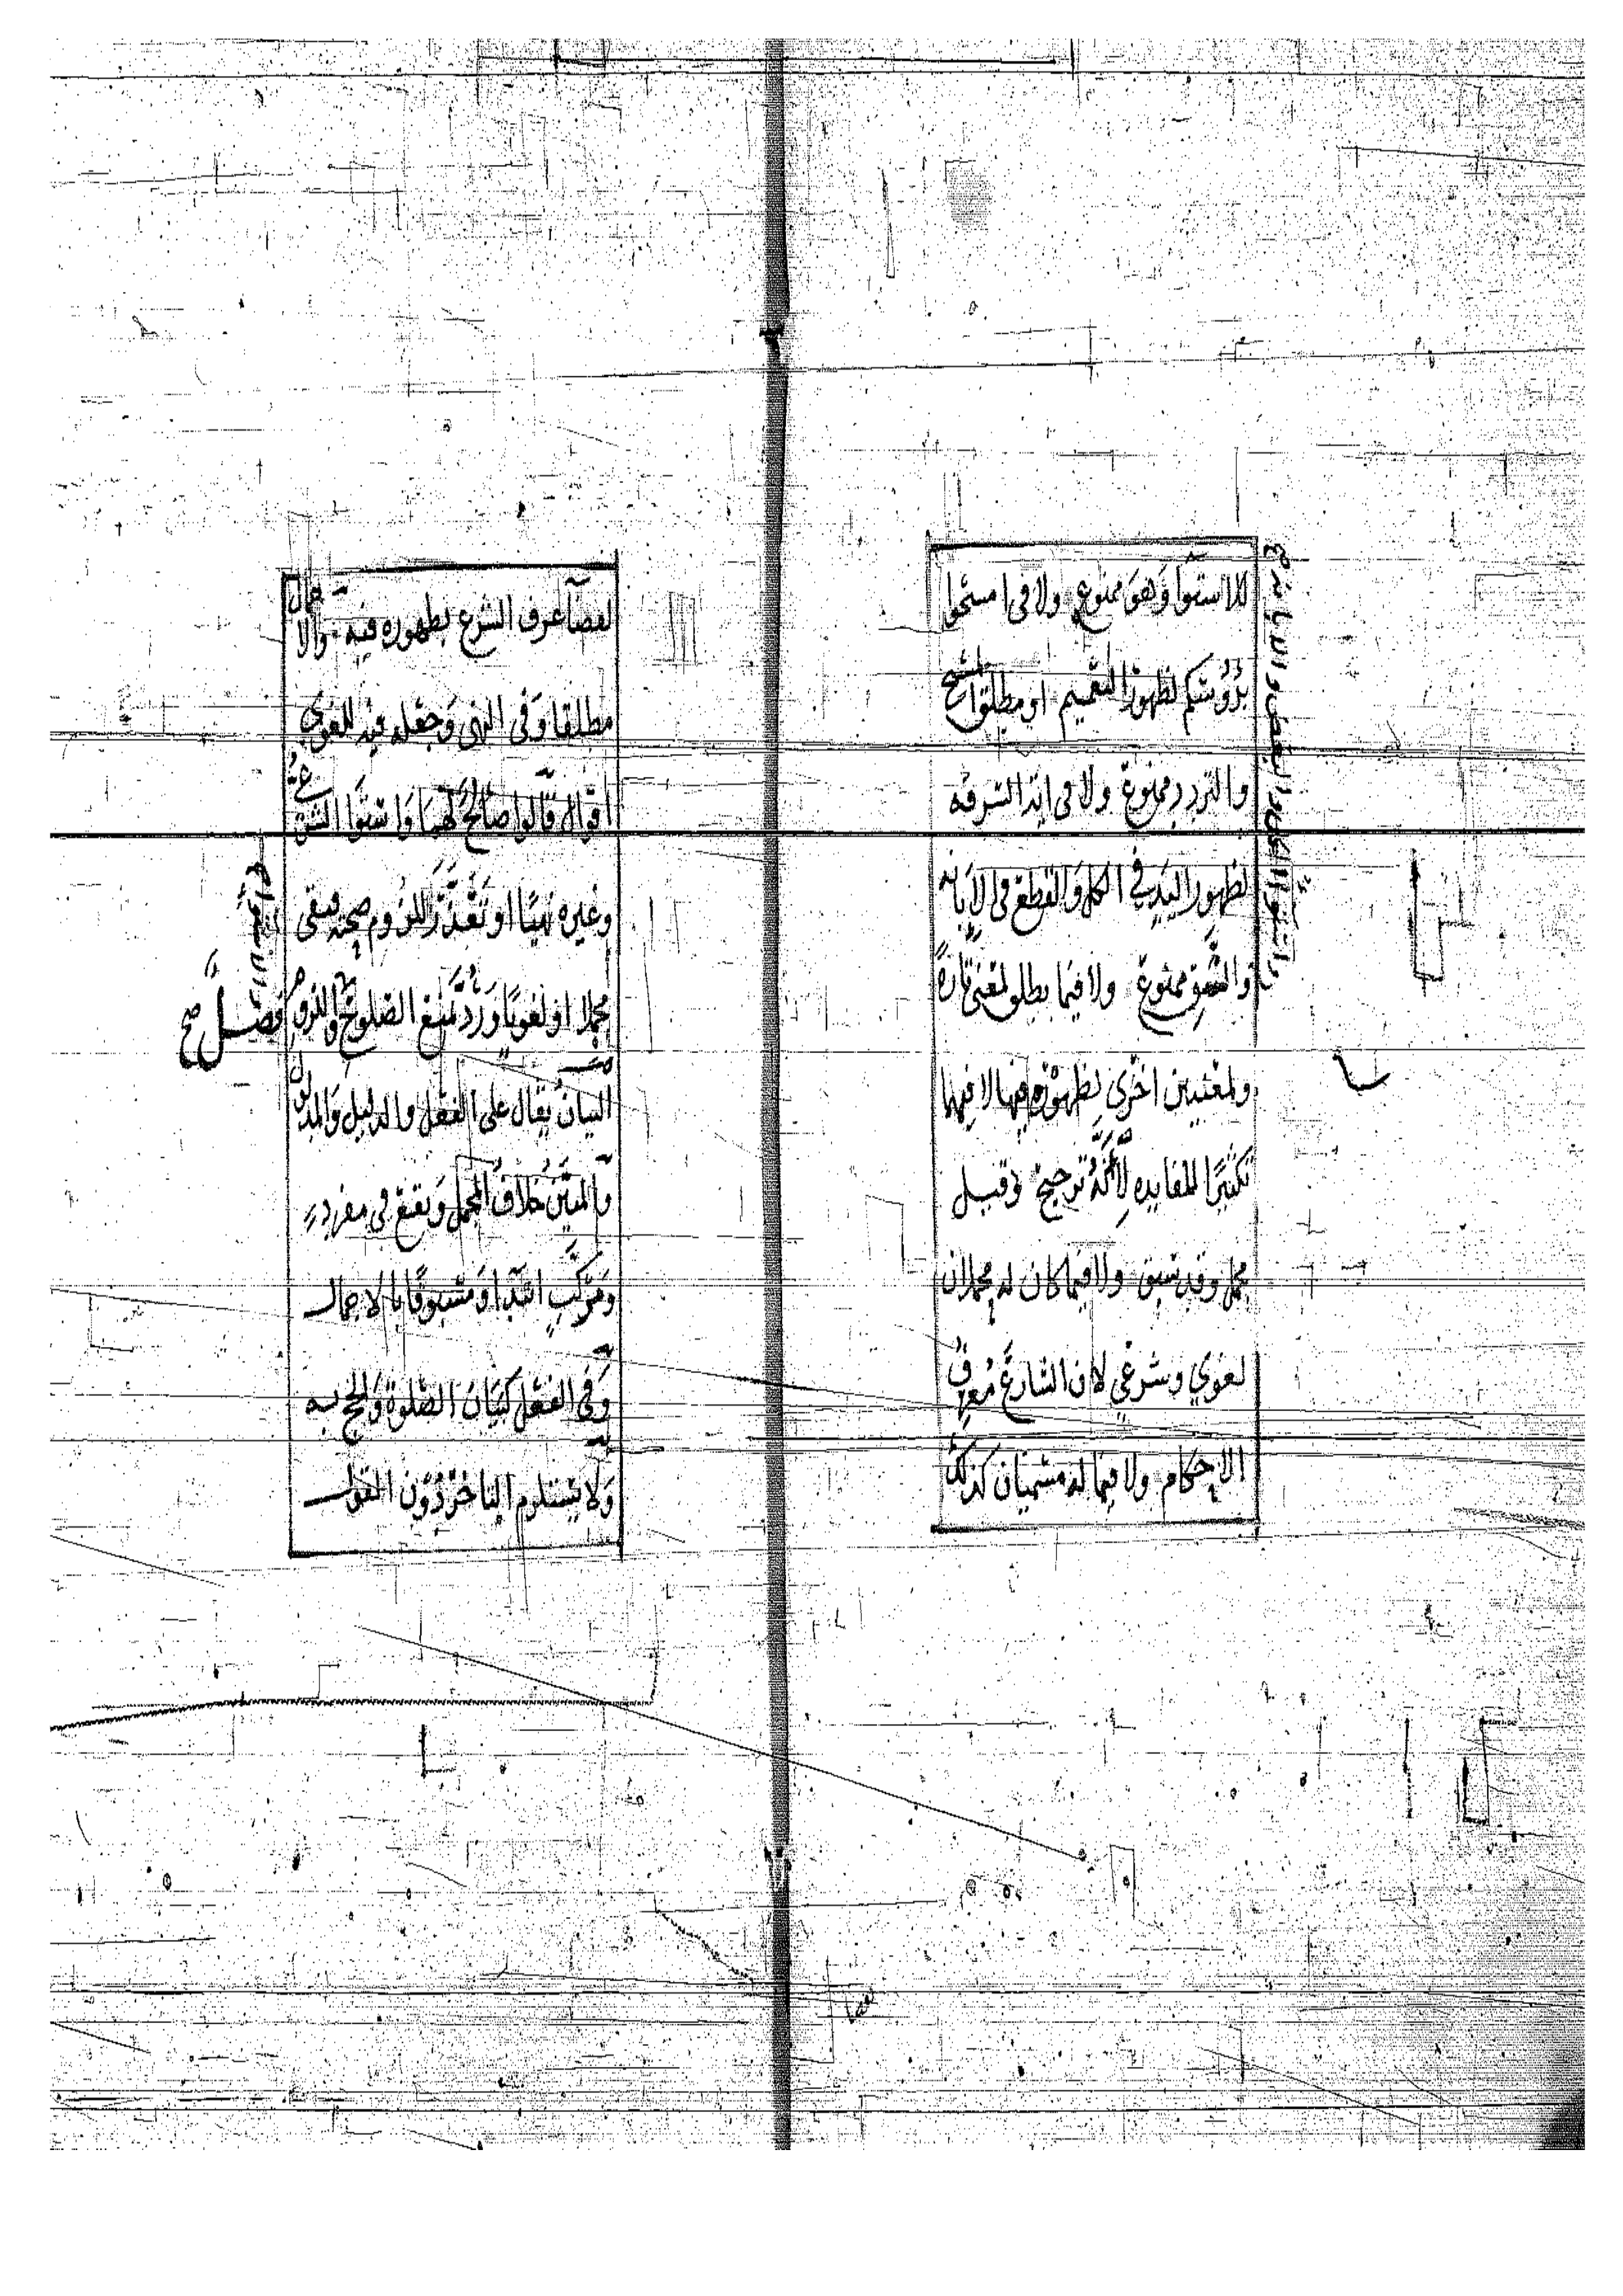 للاستوا وهو ممنوع ولا في امسحوا
برؤوسكم لظهور التعميم او مطلق المسح
والتردد ممنوع ولا في اية السرقه
لظهور اليد في الكل والقطع في الابانه
والشق ممنوع ولا فيما يطلق لمعنى تارة
ولمعنيين اخرى لظهوره فيها لا فيهما
تكثيرًا للفايده لانه ترجيح وقيل
مجمل وقد سبق ولا فيما كان له محملان
لغوي وشرعي لان الشارع معرف
الاحكام ولا فيما له مسميان كذلك
لقضآ عرف الشرع بظهوره فيه والاجمال
مطلقا وفي النهي وجعله فيه للغوي
اقوال قالوا صالح لهما واستوا الشرعي
وغيره نهيًا او تعذر للزوم صحته فبقي
مجملا او لغويًا ورد بمنع الصلوح واللزوم
فصل صح
البيان يقال على الفعل والدليل والمدلول
والمبين خلاف المجمل ويقع في مفرد
ومركب ابتدآ ومسبوقًا بالاجمال
وفي الفعل كبيان الصلوة والحج به
ولا يستلزم التاخر دون القول